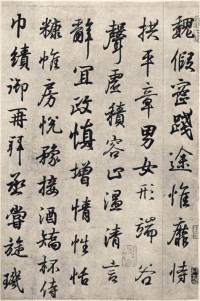 魏假踐途惟靡恃
拱平章男女形端谷
聲虛積容止溫清言
辭宜政慎增情性恬
糠帷房悅豫接酒矯杯侍
巾績御再拜丞嘗旋璣